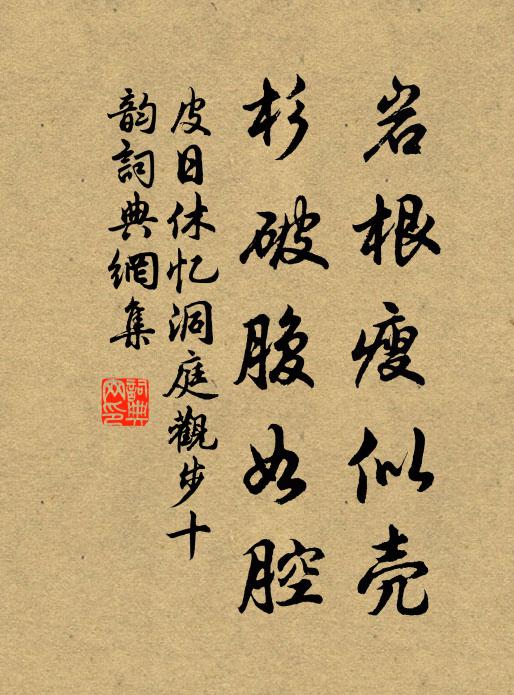 岩根瘦似壳
杉破腹如腔
皮日休忆洞庭觀步十
韵詞典網集
詞典
网印